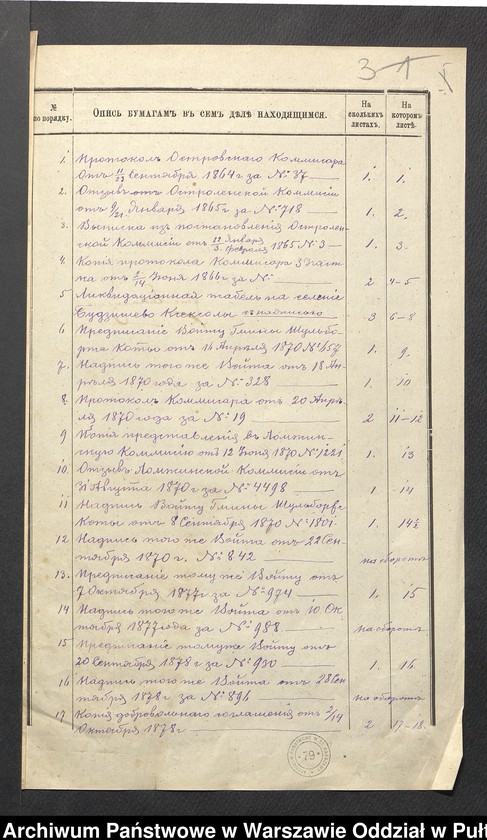 3-1
№ по порядку.
Опись бумагамъ въ семъ дѣлѣ находящимся.
На сколькихъ листахъ.
На которомъ листѣ.
1. Протоколъ Островскаго Коммисара
отъ 11/23 Сентября 1864 г за №. 37 — 1. 1.
2. Отзывъ отъ Остроленской Коммисіи
отъ 9/21 Января 1865 г за №718 — 1. 2.
3. Выписка из постановленія Остролен-
ской Коммисіи отъ 22 Января/3 Февраля 1865 №3 — 1. 3.
4. Копія протокола Коммисара 3 участ-
ка отъ 2/14 Іюня 1866 г за №. — 2 4-5
5 Ликвидаціонная табель на селеніе
Будзишево 3 6-8
6 Предписаніе Войту Гмины Шульбо-
рже Котьо отъ 14 Апрѣля 1870 №457 1. 9.
7. Надпись того же Войта отъ 18 Ап-
рѣля 1870 года за №. 328 — 1. 10
8. Протоколъ Коммисара отъ 20 Апрѣ-
ля 1870 года за №19 — 2 11-12
9 Копія представленія въ Ломжин-
скую Коммисію отъ 12 Іюня 1870 №1221 1. 13
10. Отзывъ Ломжинской Коммисіи отъ
31 Августа 1870 г за №4498 — 1. 14
11 Надпись Войту Гмины Шульборже
Коты отъ 8 Сентября 1870 №1801. 1. 14½
12 Надпись того же Войта отъ 22 Сен-
тября 1870 г. №842 — на оборотѣ
13. Предписаніе тому же Войту отъ
7 Октября 1877 г за №974 — 1. 15
14 Надпись того же Войта отъ 10 Ок
тября 1877 года за №988. — на оборотѣ
15 Предписаніе тому же Войту отъ
20 Сентября 1878 г за №930 — 1. 16
16 Надпись того же Войта отъ 28 Сен
тября 1878 г за №896 на оборотѣ
17 Копія добровольнаго соглашенія отъ 2/14
Октября 1878 г — 2 17-18.
79
Archiwum Państwowe w Warszawie Oddział w Puł